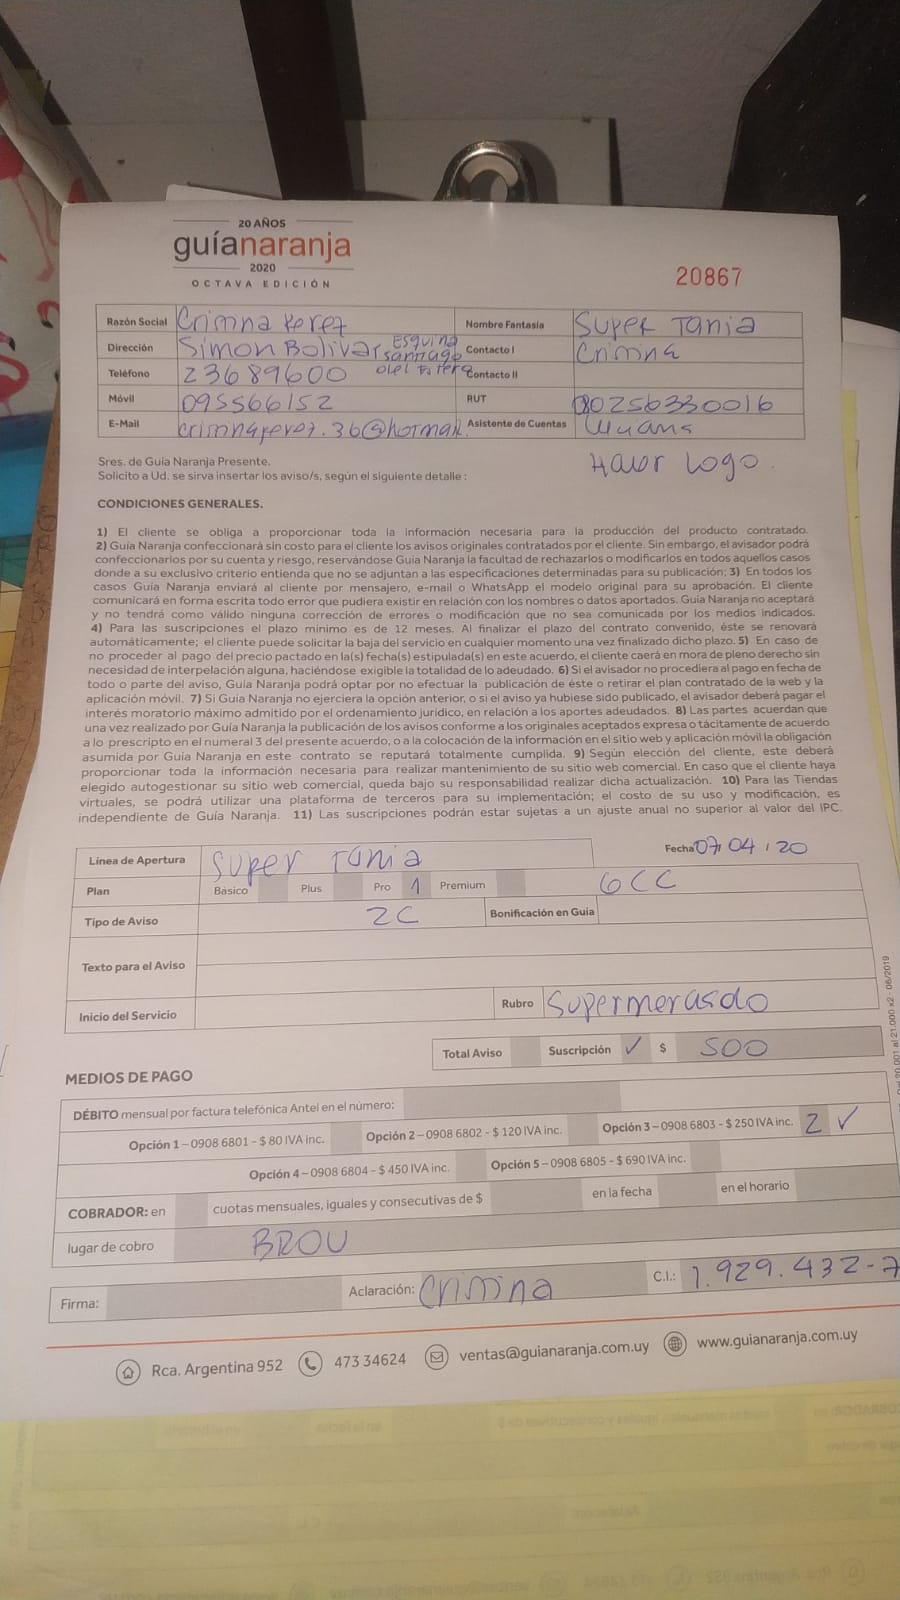 20 AÑOS
guíanaranja
2020
OCTAVA EDICIÓN
20867
Razón Social Crimna Perez Nombre Fantasía Super Tania
Dirección Simon Bolivar Esquina Santiago Contacto I Crimna
Teléfono 23689600 Contacto II
Móvil 095566152 RUT 080256330016
E-Mail crimnaperez.36@hotmail. Asistente de Cuentas
Sres. de Guía Naranja Presente.
Solicito a Ud. se sirva insertar los aviso/s, según el siguiente detalle :
Logo.
CONDICIONES GENERALES.
1) El cliente se obliga a proporcionar toda la información necesaria para la producción del producto contratado.
2) Guía Naranja confeccionará sin costo para el cliente los avisos originales contratados por el cliente. Sin embargo, el avisador podrá
confeccionarlos por su cuenta y riesgo, reservándose Guía Naranja la facultad de rechazarlos o modificarlos en todos aquellos casos
donde a su exclusivo criterio entienda que no se adjuntan a las especificaciones determinadas para su publicación; 3) En todos los
casos Guía Naranja enviará al cliente por mensajero, e-mail o WhatsApp el modelo original para su aprobación. El cliente
comunicará en forma escrita todo error que pudiera existir en relación con los nombres o datos aportados. Guía Naranja no aceptará
y no tendrá como válido ninguna corrección de errores o modificación que no sea comunicada por los medios indicados.
4) Para las suscripciones el plazo mínimo es de 12 meses. Al finalizar el plazo del contrato convenido, éste se renovará
automáticamente; el cliente puede solicitar la baja del servicio en cualquier momento una vez finalizado dicho plazo. 5) En caso de
no proceder al pago del precio pactado en la(s) fecha(s) estipulada(s) en este acuerdo, el cliente caerá en mora de pleno derecho sin
necesidad de interpelación alguna, haciéndose exigible la totalidad de lo adeudado. 6) Si el avisador no procediera al pago en fecha de
todo o parte del aviso, Guía Naranja podrá optar por no efectuar la publicación de éste o retirar el plan contratado de la web y la
aplicación móvil. 7) Si Guía Naranja no ejerciera la opción anterior, o si el aviso ya hubiese sido publicado, el avisador deberá pagar el
interés moratorio máximo admitido por el ordenamiento jurídico, en relación a los aportes adeudados. 8) Las partes acuerdan que
una vez realizado por Guía Naranja la publicación de los avisos conforme a los originales aceptados expresa o tácitamente de acuerdo
a lo prescripto en el numeral 3 del presente acuerdo, o a la colocación de la información en el sitio web y aplicación móvil la obligación
asumida por Guía Naranja en este contrato se reputará totalmente cumplida. 9) Según elección del cliente, este deberá
proporcionar toda la información necesaria para realizar mantenimiento de su sitio web comercial. En caso que el cliente haya
elegido autogestionar su sitio web comercial, queda bajo su responsabilidad realizar dicha actualización. 10) Para las Tiendas
virtuales, se podrá utilizar una plataforma de terceros para su implementación; el costo de su uso y modificación, es
independiente de Guía Naranja. 11) Las suscripciones podrán estar sujetas a un ajuste anual no superior al valor del IPC.
Línea de Apertura Super Tania Fecha 07/04/20
Plan Básico Plus Pro 1 Premium 6CC
Tipo de Aviso 2C Bonificación en Guía
Texto para el Aviso
Inicio del Servicio Rubro Supermerasdo
Total Aviso Suscripción ✓ $ 500
MEDIOS DE PAGO
DÉBITO mensual por factura telefónica Antel en el número:
Opción 1 – 0908 6801 - $ 80 IVA inc. Opción 2 – 0908 6802 - $ 120 IVA inc. Opción 3 – 0908 6803 - $ 250 IVA inc. 2 ✓
Opción 4 – 0908 6804 - $ 450 IVA inc. Opción 5 – 0908 6805 - $ 690 IVA inc.
COBRADOR: en cuotas mensuales, iguales y consecutivas de $ en la fecha en el horario
lugar de cobro BROU
Firma: Aclaración: Crimina C.I.: 1.929.432-7
Rca. Argentina 952 473 34624 ventas@guianaranja.com.uy www.guianaranja.com.uy
al 21.000 x2 - 06/2019